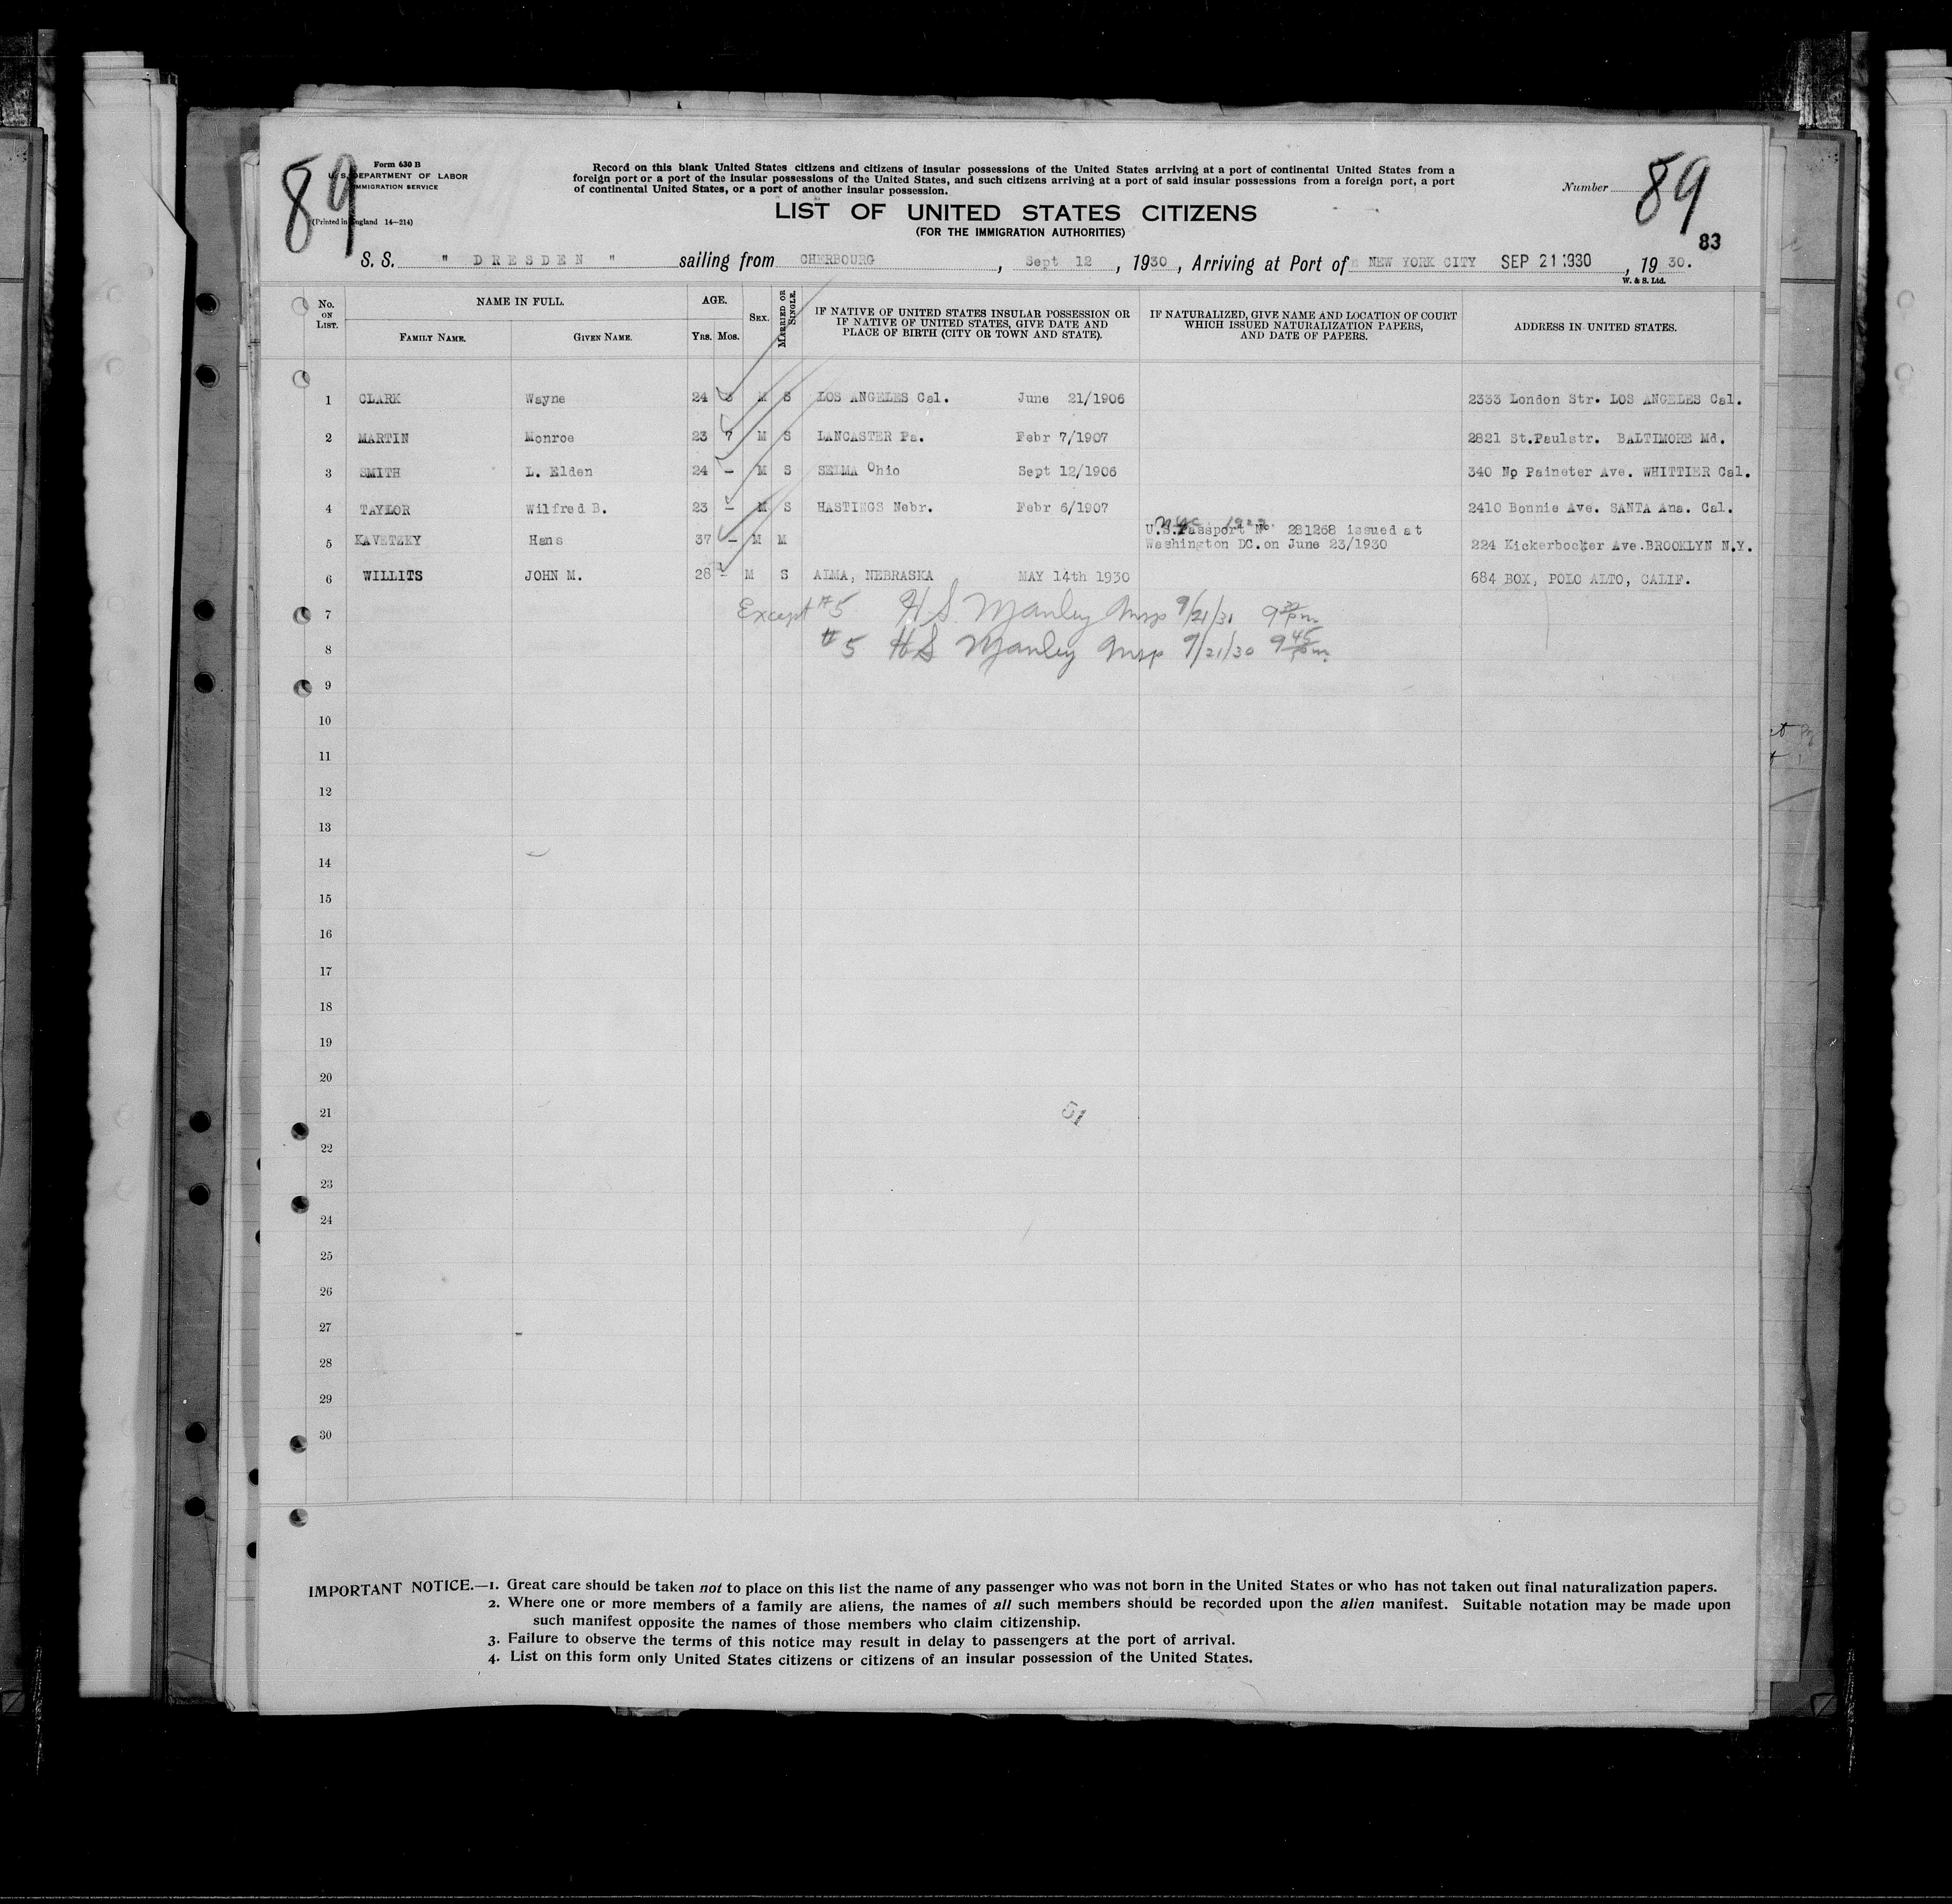 89
Form 630 B
U. S. DEPARTMENT OF LABOR
IMMIGRATION SERVICE
(Printed in England 14—214)
Record on this blank United States citizens and citizens of insular possessions of the United States arriving at a port of continental United States from a
foreign port or a port of the insular possessions of the United States, and such citizens arriving at a port of said insular possessions from a foreign port, a port
of continental United States, or a port of another insular possession.
Number 89
LIST OF UNITED STATES CITIZENS
(FOR THE IMMIGRATION AUTHORITIES)
83
S. S. " DRESDEN " sailing from CHERBOURG, Sept 12, 1930, Arriving at Port of NEW YORK CITY SEP 21 1930, 19 30.
W. & S. Ltd.
No. ON LIST. NAME IN FULL. FAMILY NAME. GIVEN NAME. AGE. YRS. MOS. SEX. MARRIED OR SINGLE. IF NATIVE OF UNITED STATES INSULAR POSSESSION OR IF NATIVE OF UNITED STATES, GIVE DATE AND PLACE OF BIRTH (CITY OR TOWN AND STATE). IF NATURALIZED, GIVE NAME AND LOCATION OF COURT WHICH ISSUED NATURALIZATION PAPERS, AND DATE OF PAPERS. ADDRESS IN UNITED STATES.
1 CLARK Wayne 24 3 M S LOS ANGELES Cal. June 21/1906 2333 London Str. LOS ANGELES Cal.
2 MARTIN Monroe 23 7 M S LANCASTER Pa. Febr 7/1907 2821 St.Paulstr. BALTIMORE Md.
3 SMITH L. Elden 24 — M S SELMA Ohio Sept 12/1906 340 No Paineter Ave. WHITTIER Cal.
4 TAYLOR Wilfred B. 23 — M S HASTINGS Nebr. Febr 6/1907 2410 Bonnie Ave. SANTA Ana. Cal.
U.S.Passport No. 281268 issued at
5 KAVETZKY Hans 37 — M M Washington DC. on June 23/1930 224 Kickerbocker Ave.BROOKLYN N.Y.
6 WILLITS JOHN M. 28 - M S ALMA, NEBRASKA MAY 14th 1930 684 BOX, POLO ALTO, CALIF.
7 Except #5 H S. Manley Insp 9/21/31 9 pm.
8 #5 HS Manley Insp 9/21/30 9 45 pm.
9
10
11
12
13
14
15
16
17
18
19
20
21
51
22
23
24
25
26
27
28
29
30
IMPORTANT NOTICE.—1. Great care should be taken not to place on this list the name of any passenger who was not born in the United States or who has not taken out final naturalization papers.
2. Where one or more members of a family are aliens, the names of all such members should be recorded upon the alien manifest. Suitable notation may be made upon
such manifest opposite the names of those members who claim citizenship.
3. Failure to observe the terms of this notice may result in delay to passengers at the port of arrival.
4. List on this form only United States citizens or citizens of an insular possession of the United States.